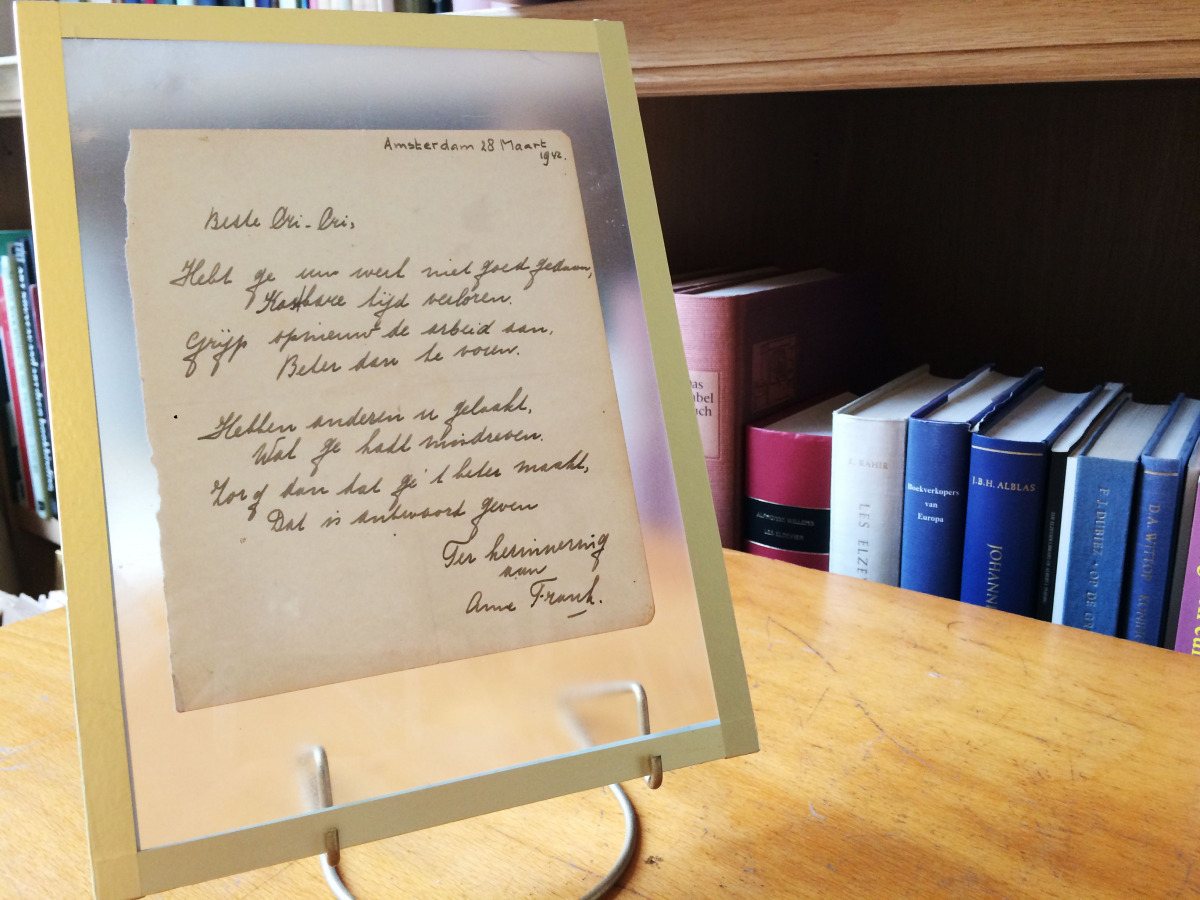 Amsterdam 28 Maart
1942.
Beste Cri-Cri,
Hebt ge uw werk niet goed gedaan,
Kostbare tijd verloren.
Grijp opnieuw de arbeid aan,
Beter dan te voren.
Hebben anderen u gelaakt,
Wat ge hadt misdreven.
Zorg dan dat ge 't beter maakt,
Dat is antwoord geven
Ter herinnering
aan
Anne Frank.
ALPHONSE WILLEMS
LES ELZEVIER
E. RAHIR
LES ELZE
Boekverkopers
van
Europa
J.B.H. ALBLAS
JOHANN
F.J. DUBIEZ · OP DE GR
D.A. WITTOP KONIN